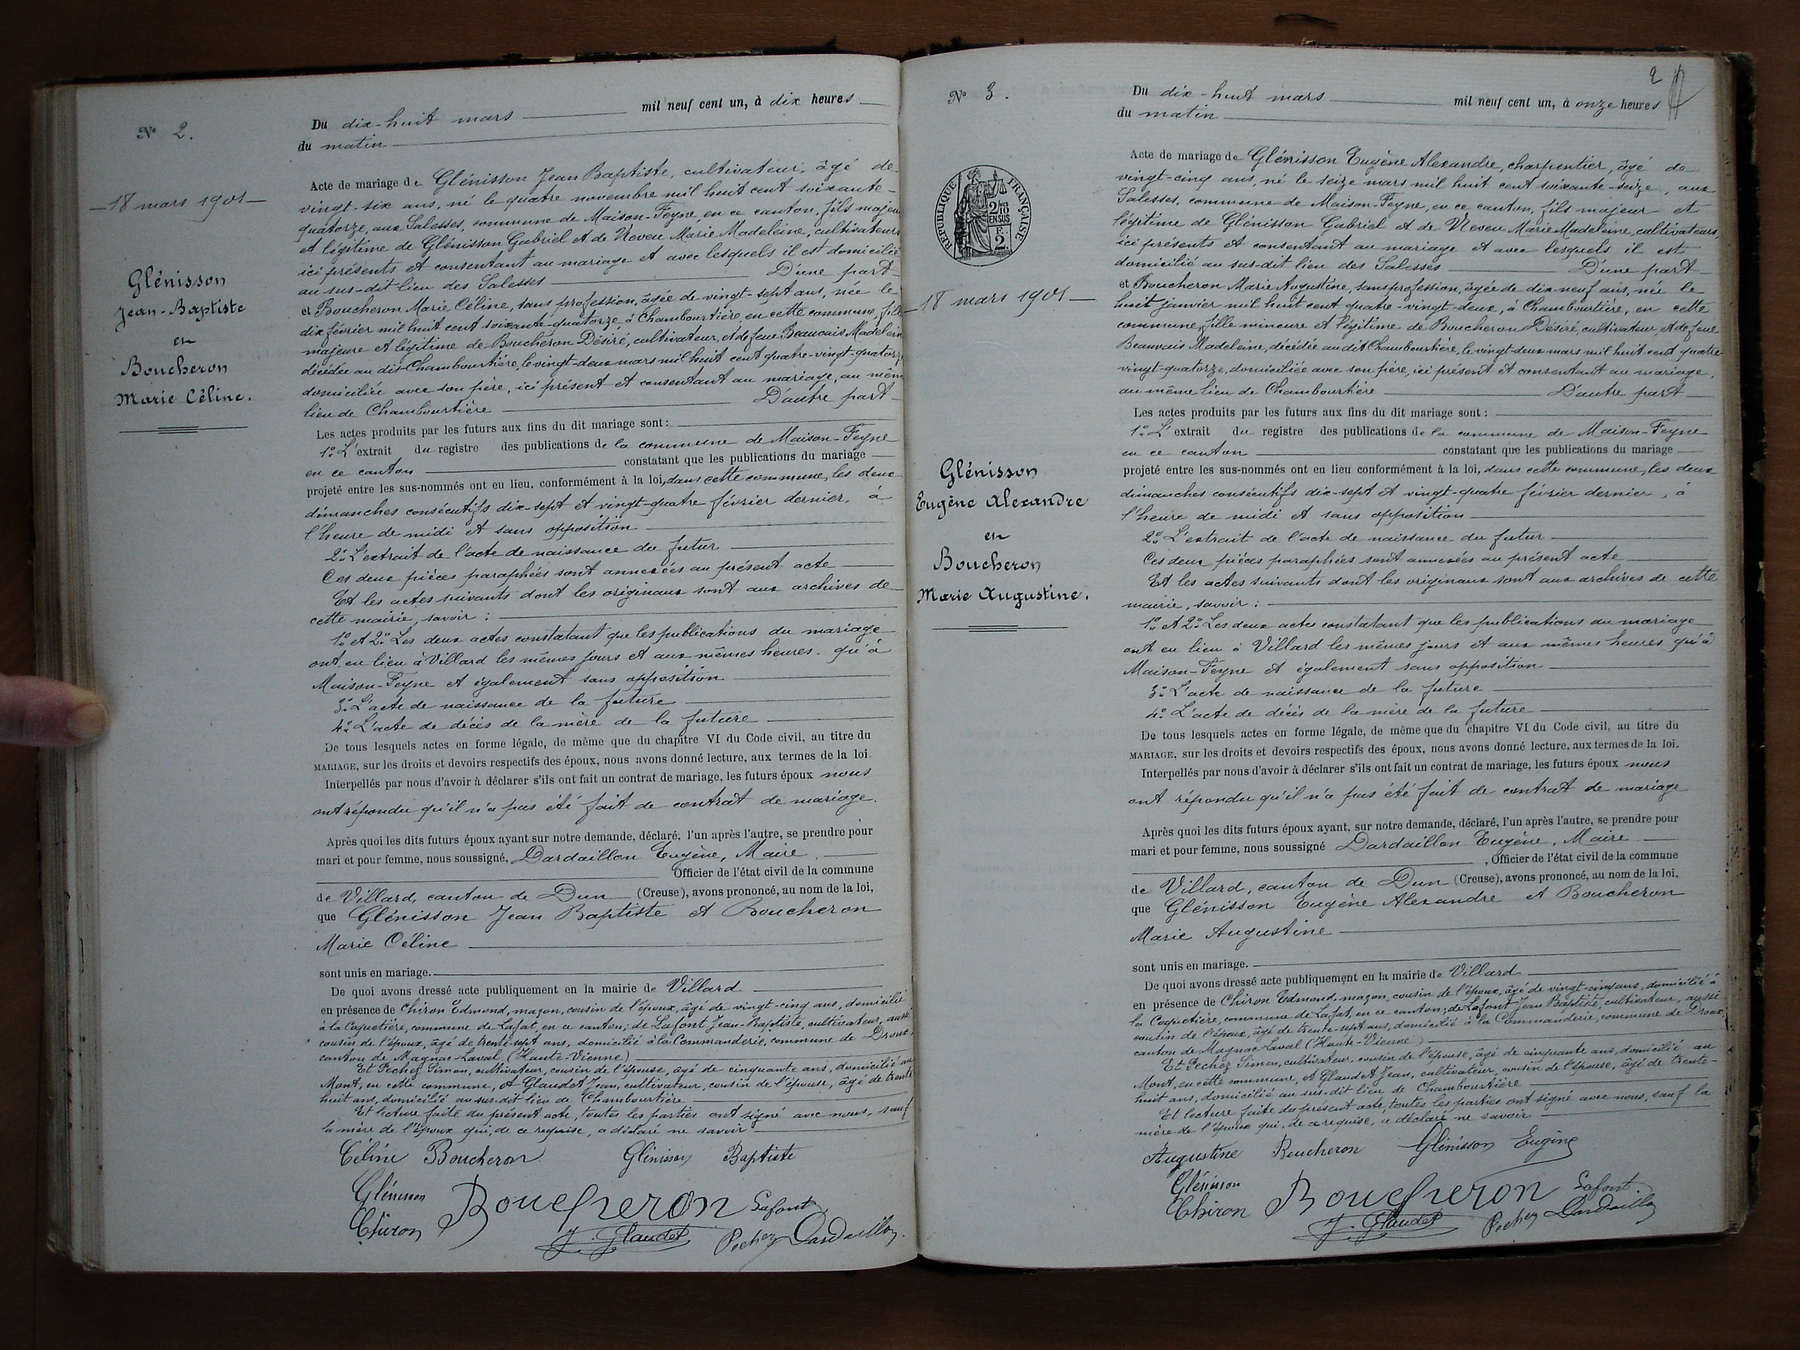 N° 2.
18 mars 1901
Glénisson
Jean-Baptiste
en
Boucheron
Marie Céline.
Du dix-huit mars mil neuf cent un, à dix heures
du matin
Acte de mariage de Glénisson Jean Baptiste, cultivateur, âgé de
vingt-six ans, né le quatre novembre mil huit cent soixante-
quatorze, aux Salesses, commune de Maison-Feyne, en ce canton, fils majeur
et légitime de Glénisson Gabriel et de Neveu Marie Madeleine, cultivateurs
ici présents et consentant au mariage et avec lesquels il est domicilié
au sus-dit lieu des Salesses D'une part
et Boucheron Marie Céline, sans profession, âgée de vingt-sept ans, née le
dix février mil huit cent soixante-quatorze à Chambourtière, en cette commune, fille
majeure et légitime de Boucheron Désiré, cultivateur, et de feue Beauvais Madeleine
décédée au dit Chambourtière, le vingt-deux mars mil huit cent quatre-vingt-quatorze
domiciliée avec son père, ici présent et consentant au mariage, au même
lieu de Chambourtière D'autre part
Les actes produits par les futurs aux fins du dit mariage sont :
1° L'extrait du registre des publications de la commune de Maison-Feyne
en ce canton constatant que les publications du mariage
projeté entre les sus-nommés ont eu lieu, conformément à la loi, dans cette commune, les deux
dimanches consécutifs dix-sept et vingt-quatre février dernier, à
l'heure de midi et sans opposition
2° L'extrait de l'acte de naissance du futur
Ces deux pièces paraphées sont annexées au présent acte
Et les actes suivants dont les originaux sont aux archives de
cette mairie, savoir :
1° et 2° Les deux actes constatant que les publications du mariage
ont eu lieu à Villard les mêmes jours et aux mêmes heures qu'à
Maison-Feyne et également sans opposition
3° L'acte de naissance de la future
4° L'acte de décès de la mère de la future
De tous lesquels actes en forme légale, de même que du chapitre VI du Code civil, au titre du
MARIAGE, sur les droits et devoirs respectifs des époux, nous avons donné lecture, aux termes de la loi.
Interpellés par nous d'avoir à déclarer s'ils ont fait un contrat de mariage, les futurs époux nous
ont répondu qu'il n'a pas été fait de contrat de mariage.
Après quoi les dits futurs époux ayant sur notre demande, déclaré, l'un après l'autre, se prendre pour
mari et pour femme, nous soussigné, Dardaillon Eugène, Maire,
Officier de l'état civil de la commune
de Villard, canton de Dun (Creuse), avons prononcé, au nom de la loi,
que Glénisson Jean Baptiste et Boucheron
Marie Céline
sont unis en mariage.
De quoi avons dressé acte publiquement en la mairie de Villard
en présence de Chiron Edmond, maçon, cousin de l'époux, âgé de vingt-cinq ans, domicilié
à la Coquetière, commune de Lafat, en ce canton; de Lafont Jean-Baptiste, cultivateur, aussi
cousin de l'époux, âgé de trente-sept ans, domicilié à la Commanderie, commune de Droux
canton de Magnac-Laval (Haute-Vienne)
Et Pechez Simon, cultivateur, cousin de l'épouse, âgé de cinquante ans, domicilié au
Mont, en cette commune, et Glaudet Jean, cultivateur, cousin de l'épouse, âgé de trente
huit ans, domicilié au sus-dit lieu de Chambourtière
Et lecture faite du présent acte, toutes les parties ont signé avec nous, sauf
la mère de l'époux qui, de ce requise, a déclaré ne savoir
Céline Boucheron Glénisson Baptiste
Glénisson Boucheron Lafont
Chiron J. Glaudet Pechez Dardaillon
2
N° 3.
RÉPUBLIQUE FRANÇAISE
2 10 EN SUS
F. 2
18 mars 1901
Glénisson
Eugène Alexandre
en
Boucheron
Marie Augustine.
Du dix-huit mars mil neuf cent un, à onze heures
du matin
Acte de mariage de Glénisson Eugène Alexandre, charpentier, âgé de
vingt-cinq ans, né le seize mars mil huit cent soixante-seize, aux
Salesses, commune de Maison-Feyne, en ce canton, fils majeur et
légitime de Glénisson Gabriel et de Neveu Marie Madeleine, cultivateurs,
ici présents et consentant au mariage et avec lesquels il est
domicilié au sus-dit lieu des Salesses D'une part
et Boucheron Marie Augustine, sans profession, âgée de dix-neuf ans, née le
huit janvier mil huit cent quatre-vingt-deux, à Chambourtière, en cette
commune, fille mineure et légitime de Boucheron Désiré, cultivateur, et de feue
Beauvais Madeleine, décédée au dit Chambourtière, le vingt-deux mars mil huit cent quatre
vingt-quatorze, domiciliée avec son père, ici présent et consentant au mariage,
au même lieu de Chambourtière D'autre part
Les actes produits par les futurs aux fins du dit mariage sont :
1° L'extrait du registre des publications de la commune de Maison-Feyne
en ce canton constatant que les publications du mariage
projeté entre les sus-nommés ont eu lieu conformément à la loi, dans cette commune, les deux
dimanches consécutifs dix-sept et vingt-quatre février dernier, à
l'heure de midi et sans opposition
2° L'extrait de l'acte de naissance du futur
Ces deux pièces paraphées sont annexées au présent acte
Et les actes suivants dont les originaux sont aux archives de cette
mairie, savoir :
1° et 2° Les deux actes constatant que les publications du mariage
ont eu lieu à Villard les mêmes jours et aux mêmes heures qu'à
Maison-Feyne et également sans opposition
3° L'acte de naissance de la future
4° L'acte de décès de la mère de la future
De tous lesquels actes en forme légale, de même que du chapitre VI du Code civil, au titre du
MARIAGE, sur les droits et devoirs respectifs des époux, nous avons donné lecture, aux termes de la loi.
Interpellés par nous d'avoir à déclarer s'ils ont fait un contrat de mariage, les futurs époux nous
ont répondu qu'il n'a pas été fait de contrat de mariage
Après quoi les dits futurs époux ayant, sur notre demande, déclaré, l'un après l'autre, se prendre pour
mari et pour femme, nous soussigné Dardaillon Eugène, Maire
, Officier de l'état civil de la commune
de Villard, canton de Dun (Creuse), avons prononcé, au nom de la loi,
que Glénisson Eugène Alexandre et Boucheron
Marie Augustine
sont unis en mariage.
De quoi avons dressé acte publiquement en la mairie de Villard
en présence de Chiron Edmond, maçon, cousin de l'époux, âgé de vingt-cinq ans, domicilié à
la Coquetière, commune de Lafat, en ce canton; de Lafont Jean Baptiste, cultivateur, aussi
cousin de l'époux, âgé de trente-sept ans, domicilié à la Commanderie, commune de Droux,
canton de Magnac-Laval (Haute-Vienne)
Et Pechez Simon, cultivateur, cousin de l'épouse, âgé de cinquante ans, domicilié au
Mont, en cette commune, et Glaudet Jean, cultivateur, cousin de l'épouse, âgé de trente-
huit ans, domicilié au sus-dit lieu de Chambourtière
Et lecture faite du présent acte, toutes les parties ont signé avec nous, sauf la
mère de l'époux qui, de ce requise, a déclaré ne savoir
Augustine Boucheron Glénisson Eugène
Glénisson Boucheron Lafont
Chiron J. Glaudet Pechez Dardaillon